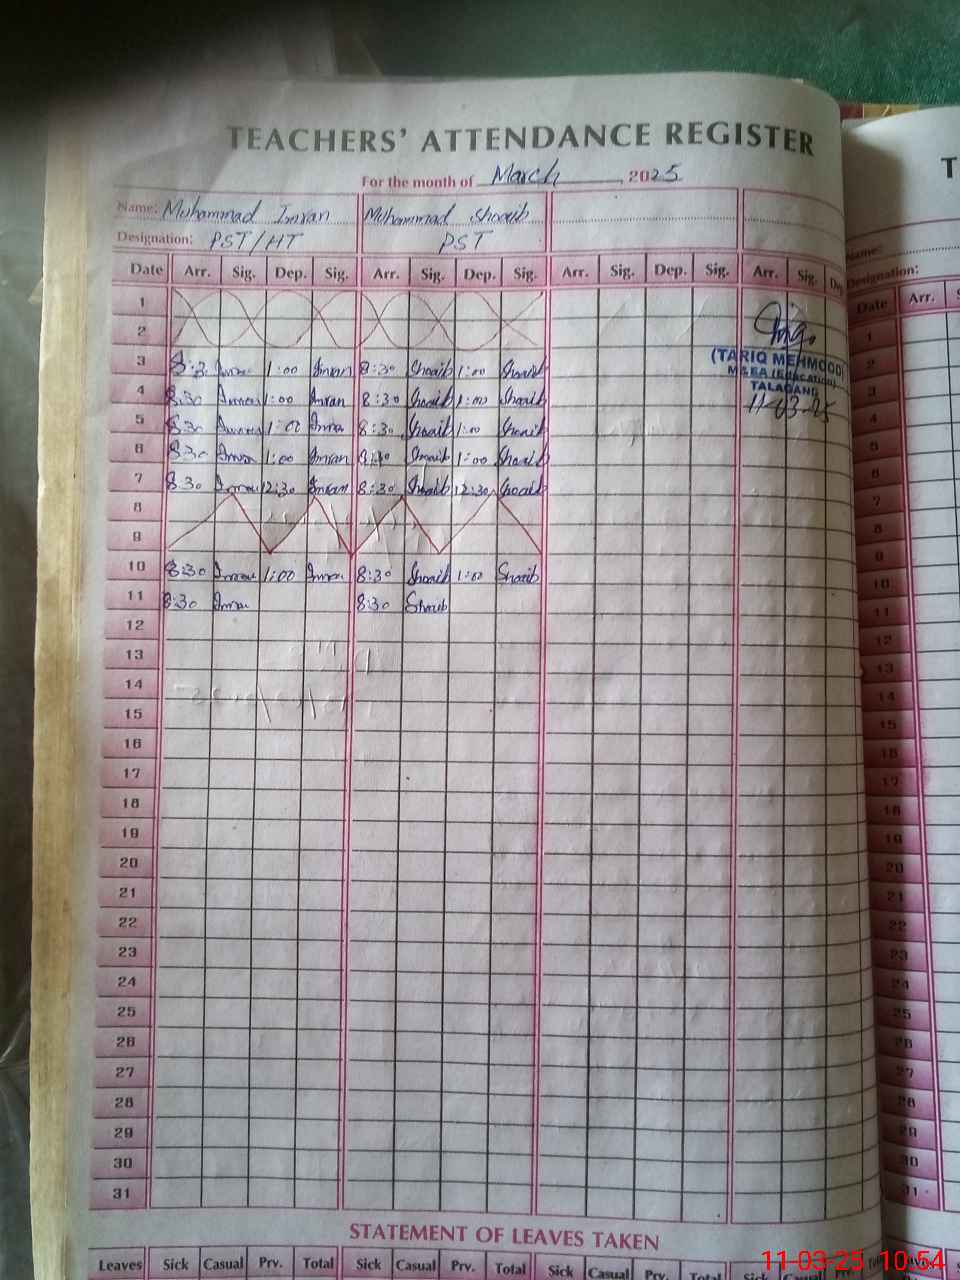 TEACHERS' ATTENDANCE REGISTER
For the month of March, 2025
Name: Muhammad Imran Muhammad Shoaib
Designation: PST/HT PST
Date Arr. Sig. Dep. Sig. Arr. Sig. Dep. Sig. Arr. Sig. Dep. Sig. Arr. Sig. De
1
2
3 8:30 Imran 1:00 Imran 8:30 Shoaib 1:00 Shoaib
4 8:30 Imran 1:00 Imran 8:30 Shoaib 1:00 Shoaib
5 8:30 Imran 1:00 Imran 8:30 Shoaib 1:00 Shoaib
6 8:30 Imran 1:00 Imran 8:30 Shoaib 1:00 Shoaib
7 8:30 Imran 12:30 Imran 8:30 Shoaib 12:30 Shoaib
8
9
10 8:30 Imran 1:00 Imran 8:30 Shoaib 1:00 Shoaib
11 8:30 Imran 8:30 Shoaib
12
13
14
15
16
17
18
19
20
21
22
23
24
25
26
27
28
29
30
31
(TARIQ MEHMOOD)
M&EA (EDUCATION)
TALAGANG
11-03-25
STATEMENT OF LEAVES TAKEN
Leaves Sick Casual Prv. Total Sick Casual Prv. Total Sick Casual Prv. Total
T
Name:
Designation:
Date Arr. S
1
2
3
4
5
6
7
8
9
10
11
12
13
14
15
16
17
18
19
20
21
22
23
24
25
26
27
28
29
30
31
11-03-25 10:54